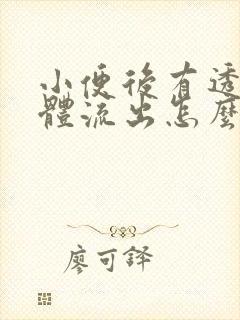 小便後有透
體流出怎麼
廖可鐸